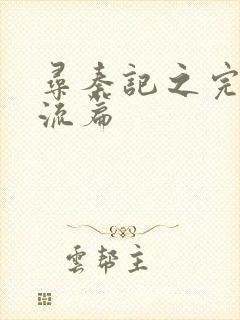 尋秦記之完
流篇
雲幫主